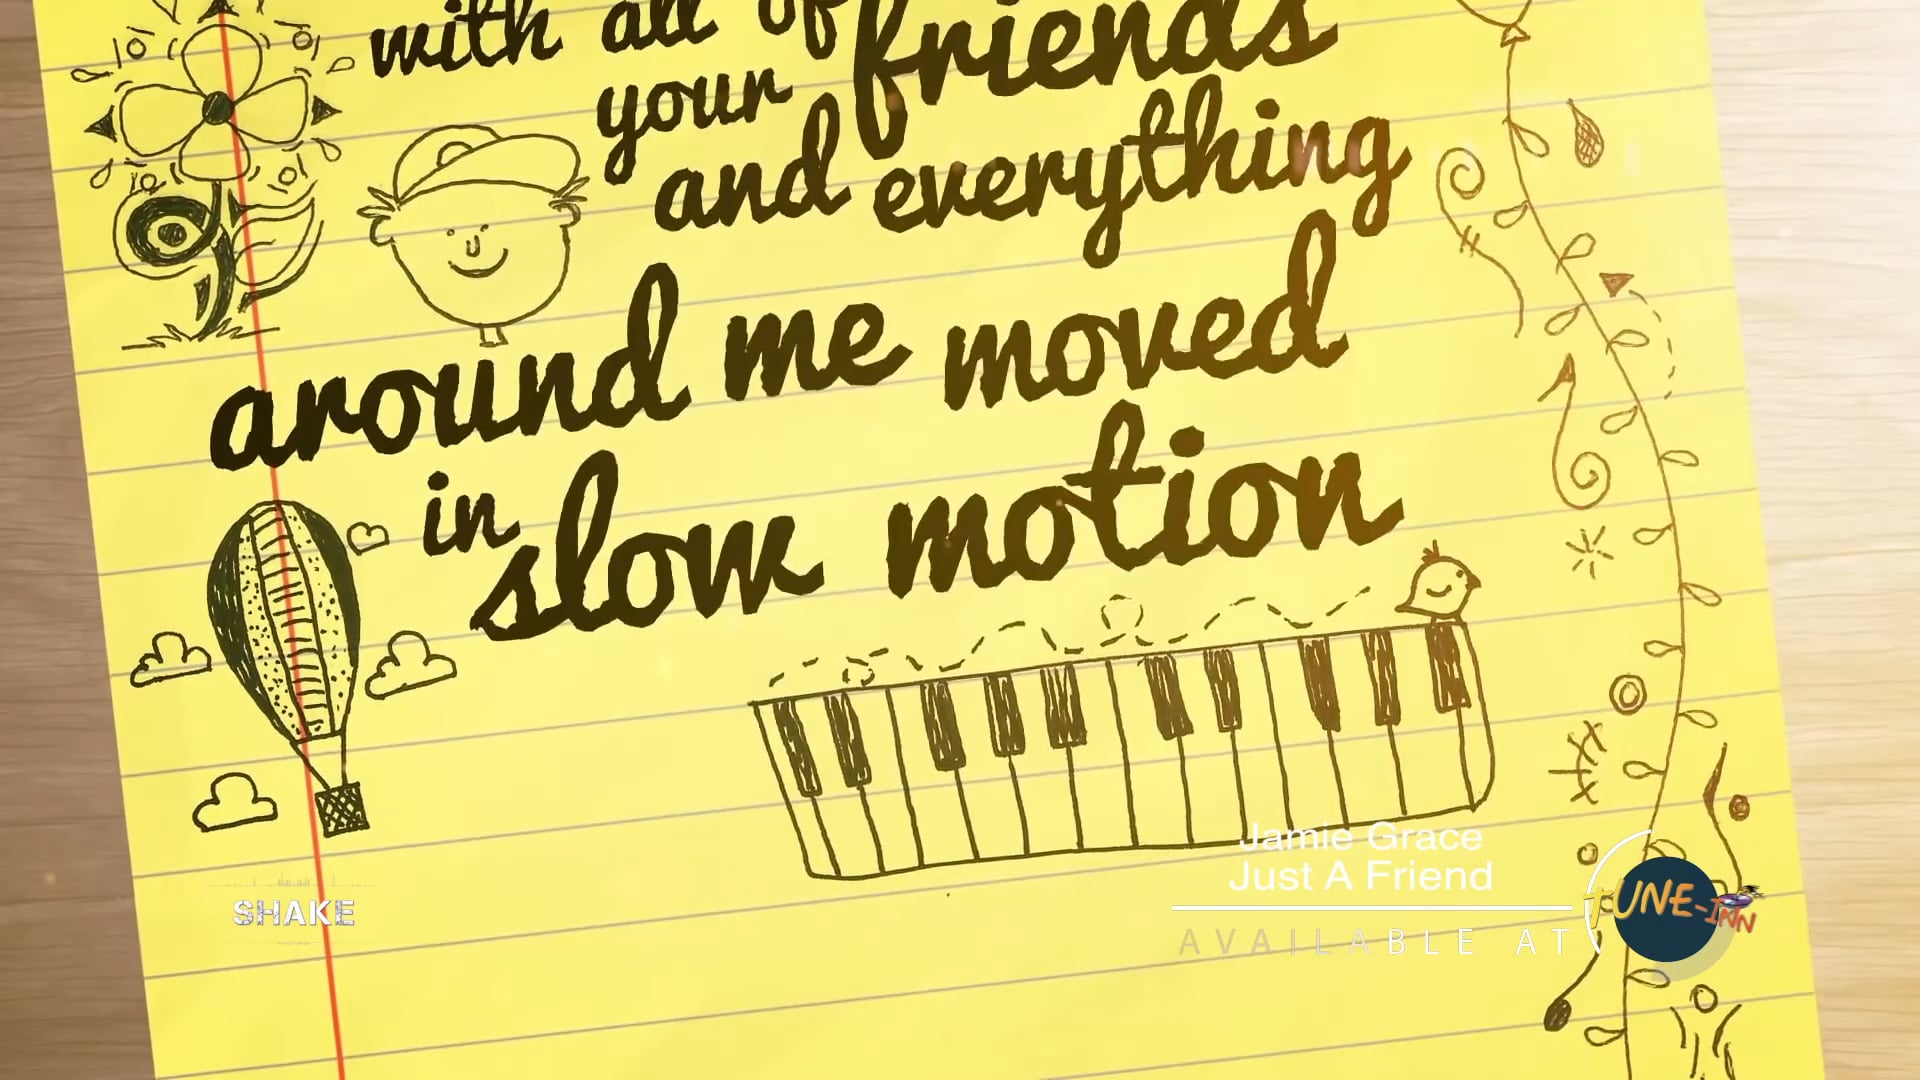 with all of
your friends
and everything
around me moved
in slow motion
Jamie Grace
Just A Friend
AVAILABLE AT
TUNE-INN
SHAKE